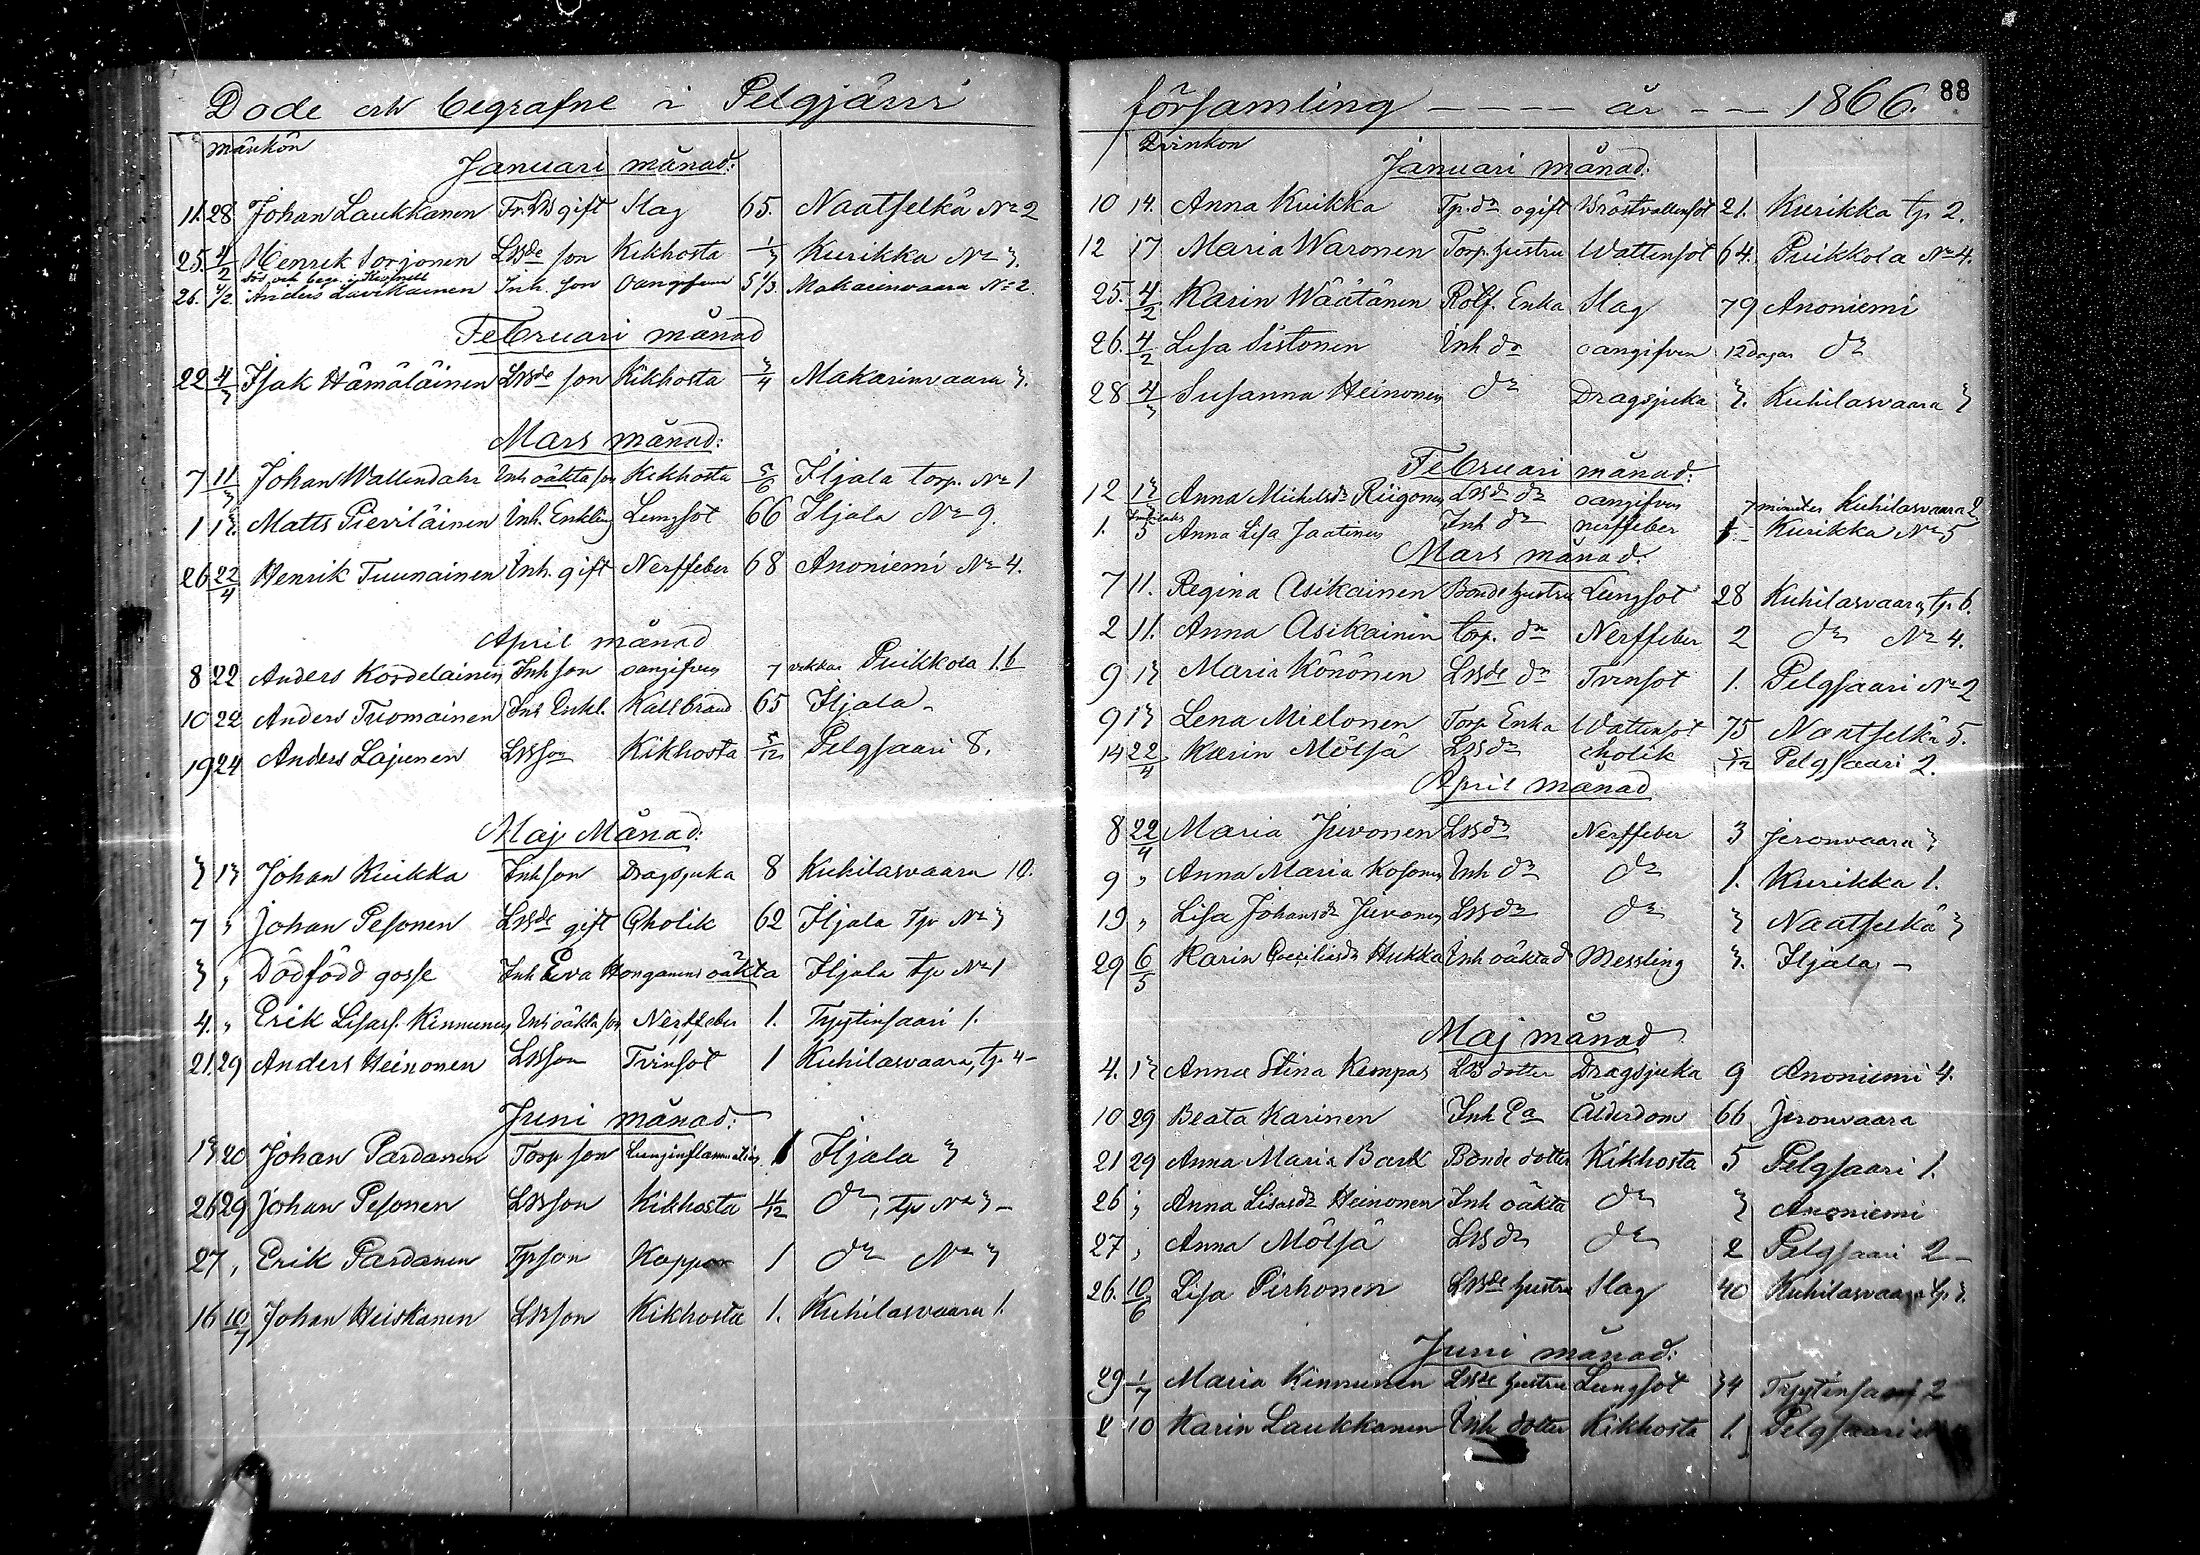 Döde och begrafne i Pelgjärvi
Mankön
Januari månad:
11. 28 Johan Laukkanen gift Slag 65. Naatselkä No 2
25. 4/2 Henrik Sorjonen Lbde son Kikhosta 1/3 Kurikka No 3.
död och begr. i
26. 4/2 Anders Lavikainen Inh. son oangifven 5 1/3. Makarinvaara No 2.
Februari månad
22 4/3 Isak Hämäläinen Lbde son Kikhosta 3/4 Makarinvaara 3.
Mars månad:
7 11/3 Johan Wallendahr Inh oäkta son Kikhosta 5/6 Iljala torp. No 1
1 13. Matts Pieviläinen Inh. Enkling Lungsot 66 Iljala No 9.
26 22/4 Henrik Tuunainen Inh. gift Nerffeber 68 Anoniemi No 4.
April månad
8 22 Anders Kordelainen Inh son oangifven 7 veckor Puikkola 1.6
10 22 Anders Tuomainen Inh Enkl. Kallbrand 65 Iljala -
19 24 Anders Lajunen Lbson Kikhosta 5/12 Pelgsaari 8.
Maj Månad:
3 13 Johan Kuikka Inh son Dragsjuka 8 Kuhilasvaara 10.
7 " Johan Pesonen Lbde gift Cholik 62 Iljala Tp No 3
3 " Dödfödd gosse Inh Eva Honganens oäkta Iljala tp No 1
4. " Erik Lisas. Kinnunen Inh oäkta son Nerffeber 1. Tyytinsaari 1.
21 29 Anders Heinonen Lbson Tvinsot 1 Kuhilasvaara, tp 4 -
Juni månad:
13 20 Johan Pardanen Torp son Lunginflammation 1 Iljala 3
26 29 Johan Pesonen Lbson Kikhosta 4/12 do, tp No 3 -
27 " Erik Pardanen Tpson Koppor 1 do No 3
16 10/7 Johan Heiskanen Lbson Kikhosta 1. Kuhilasvaara 1.
församling - - - - år - - 1866. 88
Qvinkön
Januari månad:
10 14. Anna Kuikka Tp. dr ogift Bröstvattensot 21. Kurikka tp 2.
12 17 Maria Waronen Torp. hustru Wattensot 64. Puikkola No 4.
25. 4/2 Karin Wäätänen Enka Slag 79 Anoniemi
26. 4/2 Lisa Sistonen Inh dr oangifven 12 dagar do
28 4/3 Susanna Heinonen do Dragsjuka 3. Kuhilasvaara 3
Februari månad:
12 13 Anna Michelsdr Riigonen Lbde dr oangifven 7 minuter Kuhilasvaara 2
1. Anna Lisa Jaatinen Inh dr nerffeber Kurikka No 5
Mars månad:
7 11. Regina Asikainen Bonde hustru Lungsot 28 Kuhilasvaara, tp 6.
2 11. Anna Asikainen torp. dr Nerffeber 2 do No 4.
9 13 Maria Könönen Lbde dr Tvinsot 1. Pelgsaari No 2
9 13 Lena Mielonen Torp Enka Wattensot 75 Naatselkä 5.
14 22/4 Karin Mölsä Lbdr Cholik 5/12 Pelgsaari 2.
April månad
8 22/4 Maria Juvonen Lbdr Nerffeber 3 Jeronvaara 3
9 " Anna Maria Kosonen Inh dr do 1. Kurikka 1.
19 " Lisa Johansdr Juvonen Lbdr do 3 Naatselkä 3
29 6/5 Karin Caeciliasdr Hukka Inh oäkta d Messling 3. Iljala -
Maj månad
4. 13 Anna Stina Kempas LB dotter Dragsjuka 9 Anoniemi 4.
10 29 Beata Karinen Inh Ea Ålderdom 66 Jeronvaara
21 29 Anna Maria Bark Bonde dotter Kikhosta 5 Pelgsaari 1.
26 " Anna Lisasdr Heinonen Inh oäkta do 3 Anoniemi
27 " Anna Mölsä Lbdr do 2 Pelgsaari 2 -
26. 10/6 Lisa Pirhonen Lbde hustru Slag 40 Kuhilasvaara tp 3.
Juni månad:
29 1/7 Maria Kinnunen Lbde hustru Lungsot 34 Tyytinsaari 2
2 10 Karin Laukkanen Inh dotter Kikhosta 1. Pelgsaari